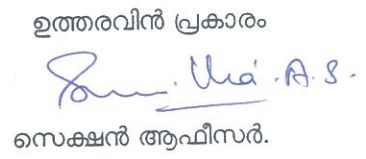 ഉത്തരവിൻ പ്രകാരം
A.S.
സെക്ഷൻ ആഫീസർ.